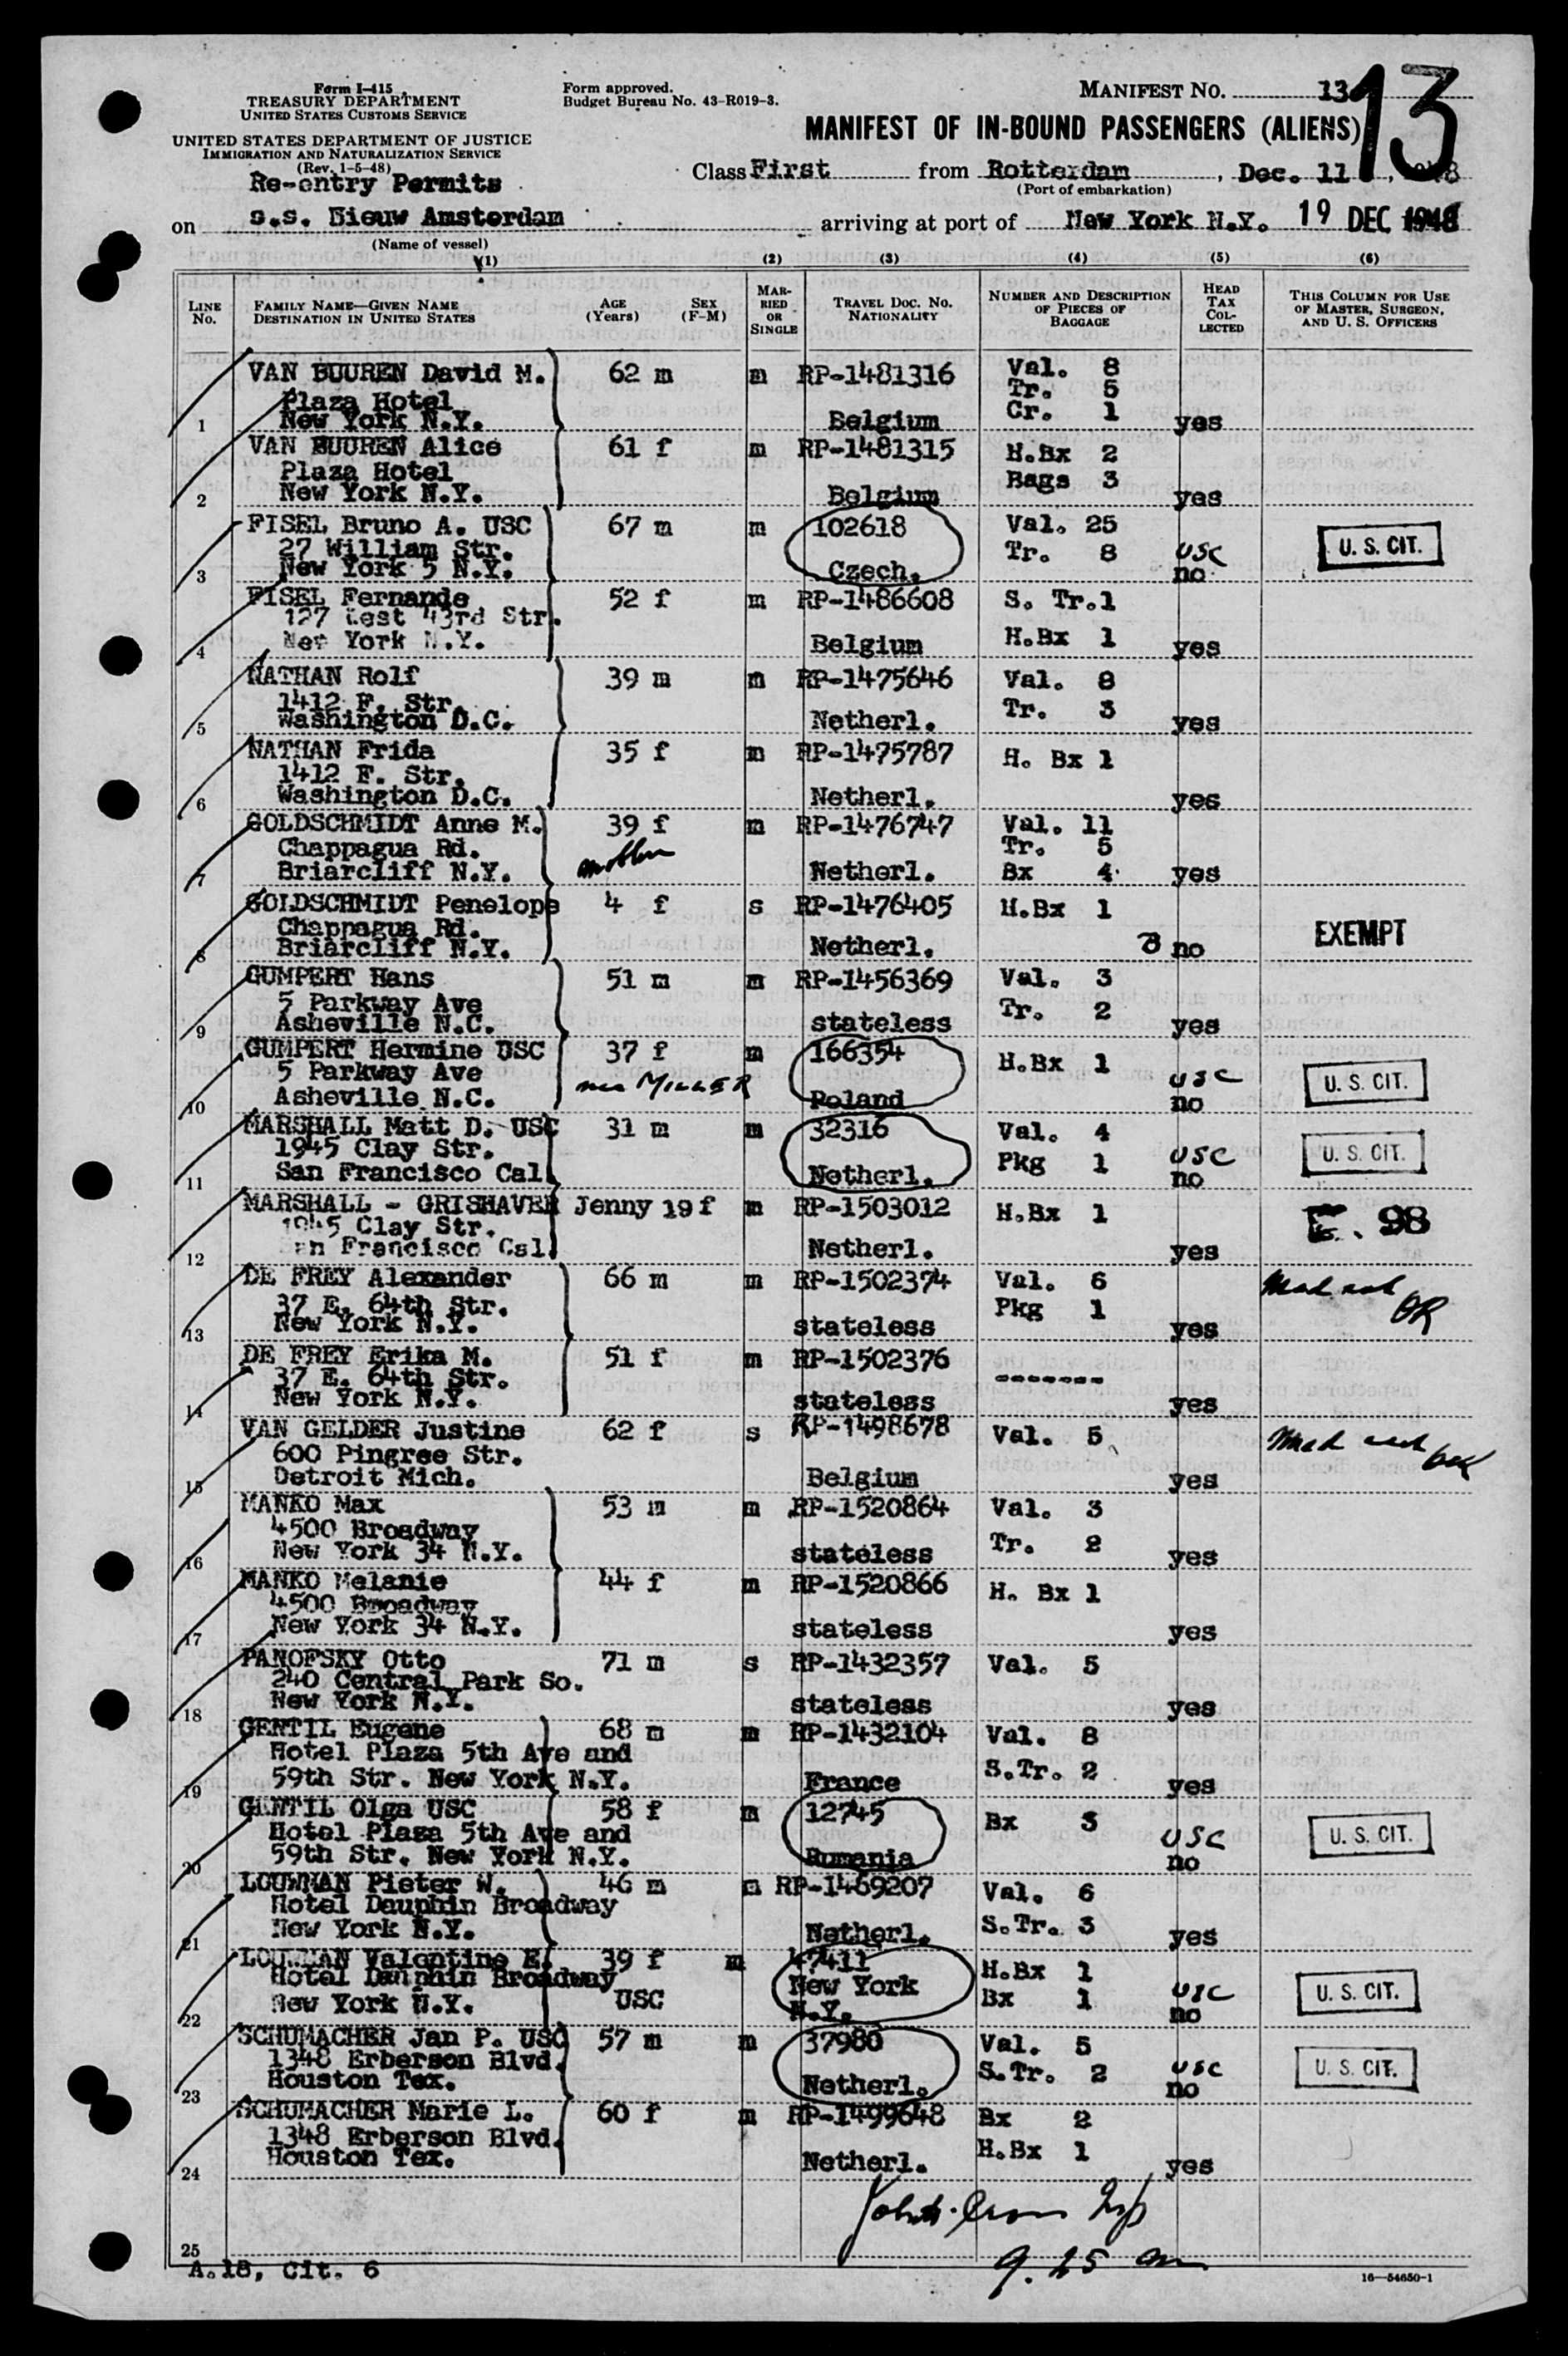 Form I-415
TREASURY DEPARTMENT
UNITED STATES CUSTOMS SERVICE
UNITED STATES DEPARTMENT OF JUSTICE
IMMIGRATION AND NATURALIZATION SERVICE
(Rev. 1-5-48)
Form approved.
Budget Bureau No. 43-R019-3.
MANIFEST NO. 13
13
MANIFEST OF IN-BOUND PASSENGERS (ALIENS)
Re-entry Permits
Class First from Rotterdam, Dec. 11
(Port of embarkation)
on s.s. Nieuw Amsterdam arriving at port of New York N.Y. 19 DEC 1948
(Name of vessel)
(1) (2) (3) (4) (5) (6)
LINE No. FAMILY NAME—GIVEN NAME DESTINATION IN UNITED STATES AGE (Years) SEX (F-M) MARRIED OR SINGLE TRAVEL DOC. NO. NATIONALITY NUMBER AND DESCRIPTION OF PIECES OF BAGGAGE HEAD TAX COLLECTED THIS COLUMN FOR USE OF MASTER, SURGEON, AND U. S. OFFICERS
VAN BUUREN David M. 62 m m RP-1481316 Val. 8
Plaza Hotel Tr. 5
1 New York N.Y. Belgium Cr. 1 yes
VAN BUUREN Alice 61 f m RP-1481315 H.Bx 2
Plaza Hotel Bags 3
2 New York N.Y. Belgium yes
FISEL Bruno A. USC 67 m m 102618 Val. 25
27 William Str. Tr. 8 USC U. S. CIT.
3 New York 5 N.Y. Czech. no
FISEL Fernande 52 f m RP-1486608 S. Tr.1
127 West 43rd Str.
4 New York N.Y. Belgium H.Bx 1 yes
NATHAN Rolf 39 m m RP-1475646 Val. 8
1412 F. Str. Tr. 3
5 Washington D.C. Netherl. yes
NATHAN Frida 35 f m RP-1475787 H. Bx 1
1412 F. Str.
6 Washington D.C. Netherl. yes
GOLDSCHMIDT Anne M. 39 f m RP-1476747 Val. 11
Chappagua Rd. mother Tr. 5
7 Briarcliff N.Y. Netherl. Bx 4 yes
GOLDSCHMIDT Penelope 4 f s RP-1476405 H.Bx 1
Chappagua Rd. EXEMPT
8 Briarcliff N.Y. Netherl. no
GUMPERT Hans 51 m m RP-1456369 Val. 3
5 Parkway Ave Tr. 2
9 Asheville N.C. stateless yes
GUMPERT Hermine USC 37 f m 166354 H.Bx 1
5 Parkway Ave nee MILLER USC U. S. CIT.
10 Asheville N.C. Poland no
MARSHALL Matt D. USC 31 m m 32316 Val. 4
1945 Clay Str. Pkg 1 USC U. S. CIT.
11 San Francisco Cal. Netherl. no
MARSHALL - GRISHAVER Jenny 19 f m RP-1503012 H.Bx 1
1945 Clay Str. E. 98
12 San Francisco Cal. Netherl. yes
DE FREY Alexander 66 m m RP-1502374 Val. 6
37 E. 64th Str. Pkg 1
13 New York N.Y. stateless yes
DE FREY Erika M. 51 f m RP-1502376
37 E. 64th Str. -------
14 New York N.Y. stateless yes
VAN GELDER Justine 62 f s RP-1498678 Val. 5
600 Pingree Str.
15 Detroit Mich. Belgium yes
MANKO Max 53 m m RP-1520864 Val. 3
4500 Broadway Tr. 2
16 New York 34 N.Y. stateless yes
MANKO Melanie 44 f m RP-1520866 H. Bx 1
4500 Broadway
17 New York 34 N.Y. stateless yes
PANOFSKY Otto 71 m s RP-1432357 Val. 5
240 Central Park So.
18 New York N.Y. stateless yes
GENTIL Eugene 68 m m RP-1432104 Val. 8
Hotel Plaza 5th Ave and S.Tr. 2
19 59th Str. New York N.Y. France yes
GENTIL Olga USC 58 f m 12745 Bx 3
Hotel Plaza 5th Ave and USC U. S. CIT.
20 59th Str. New York N.Y. Rumania no
LOUWMAN Pieter W. 46 m m RP-1469207 Val. 6
Hotel Dauphin Broadway S.Tr. 3
21 New York N.Y. Netherl. yes
LOUWMAN Valentine E. 39 f m 47411 H.Bx 1
Hotel Dauphin Broadway New York USC U. S. CIT.
22 New York N.Y. USC N.Y. Bx 1 no
SCHUMACHER Jan P. USC 57 m m 37980 Val. 5
1348 Erberson Blvd. S.Tr. 2 USC U. S. CIT.
23 Houston Tex. Netherl. no
SCHUMACHER Marie L. 60 f m RP-1499648 Bx 2
1348 Erberson Blvd. H.Bx 1
24 Houston Tex. Netherl. yes
25
9.25 am
A.18, Cit. 6
16—54650-1